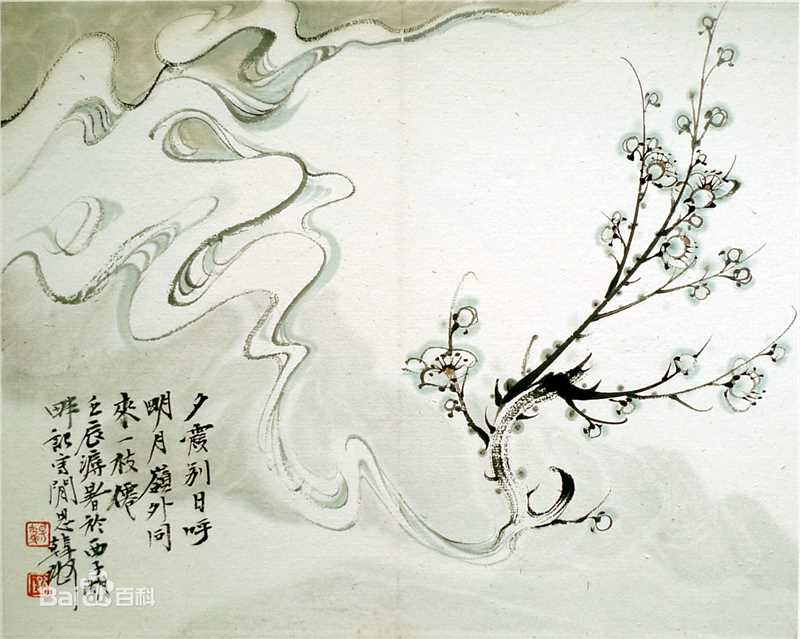 夕霞别日呼
明月嶺外同
來一枝僊
壬辰溽暑於西子湖
畔記寫閒思韓璐
Bai 百科